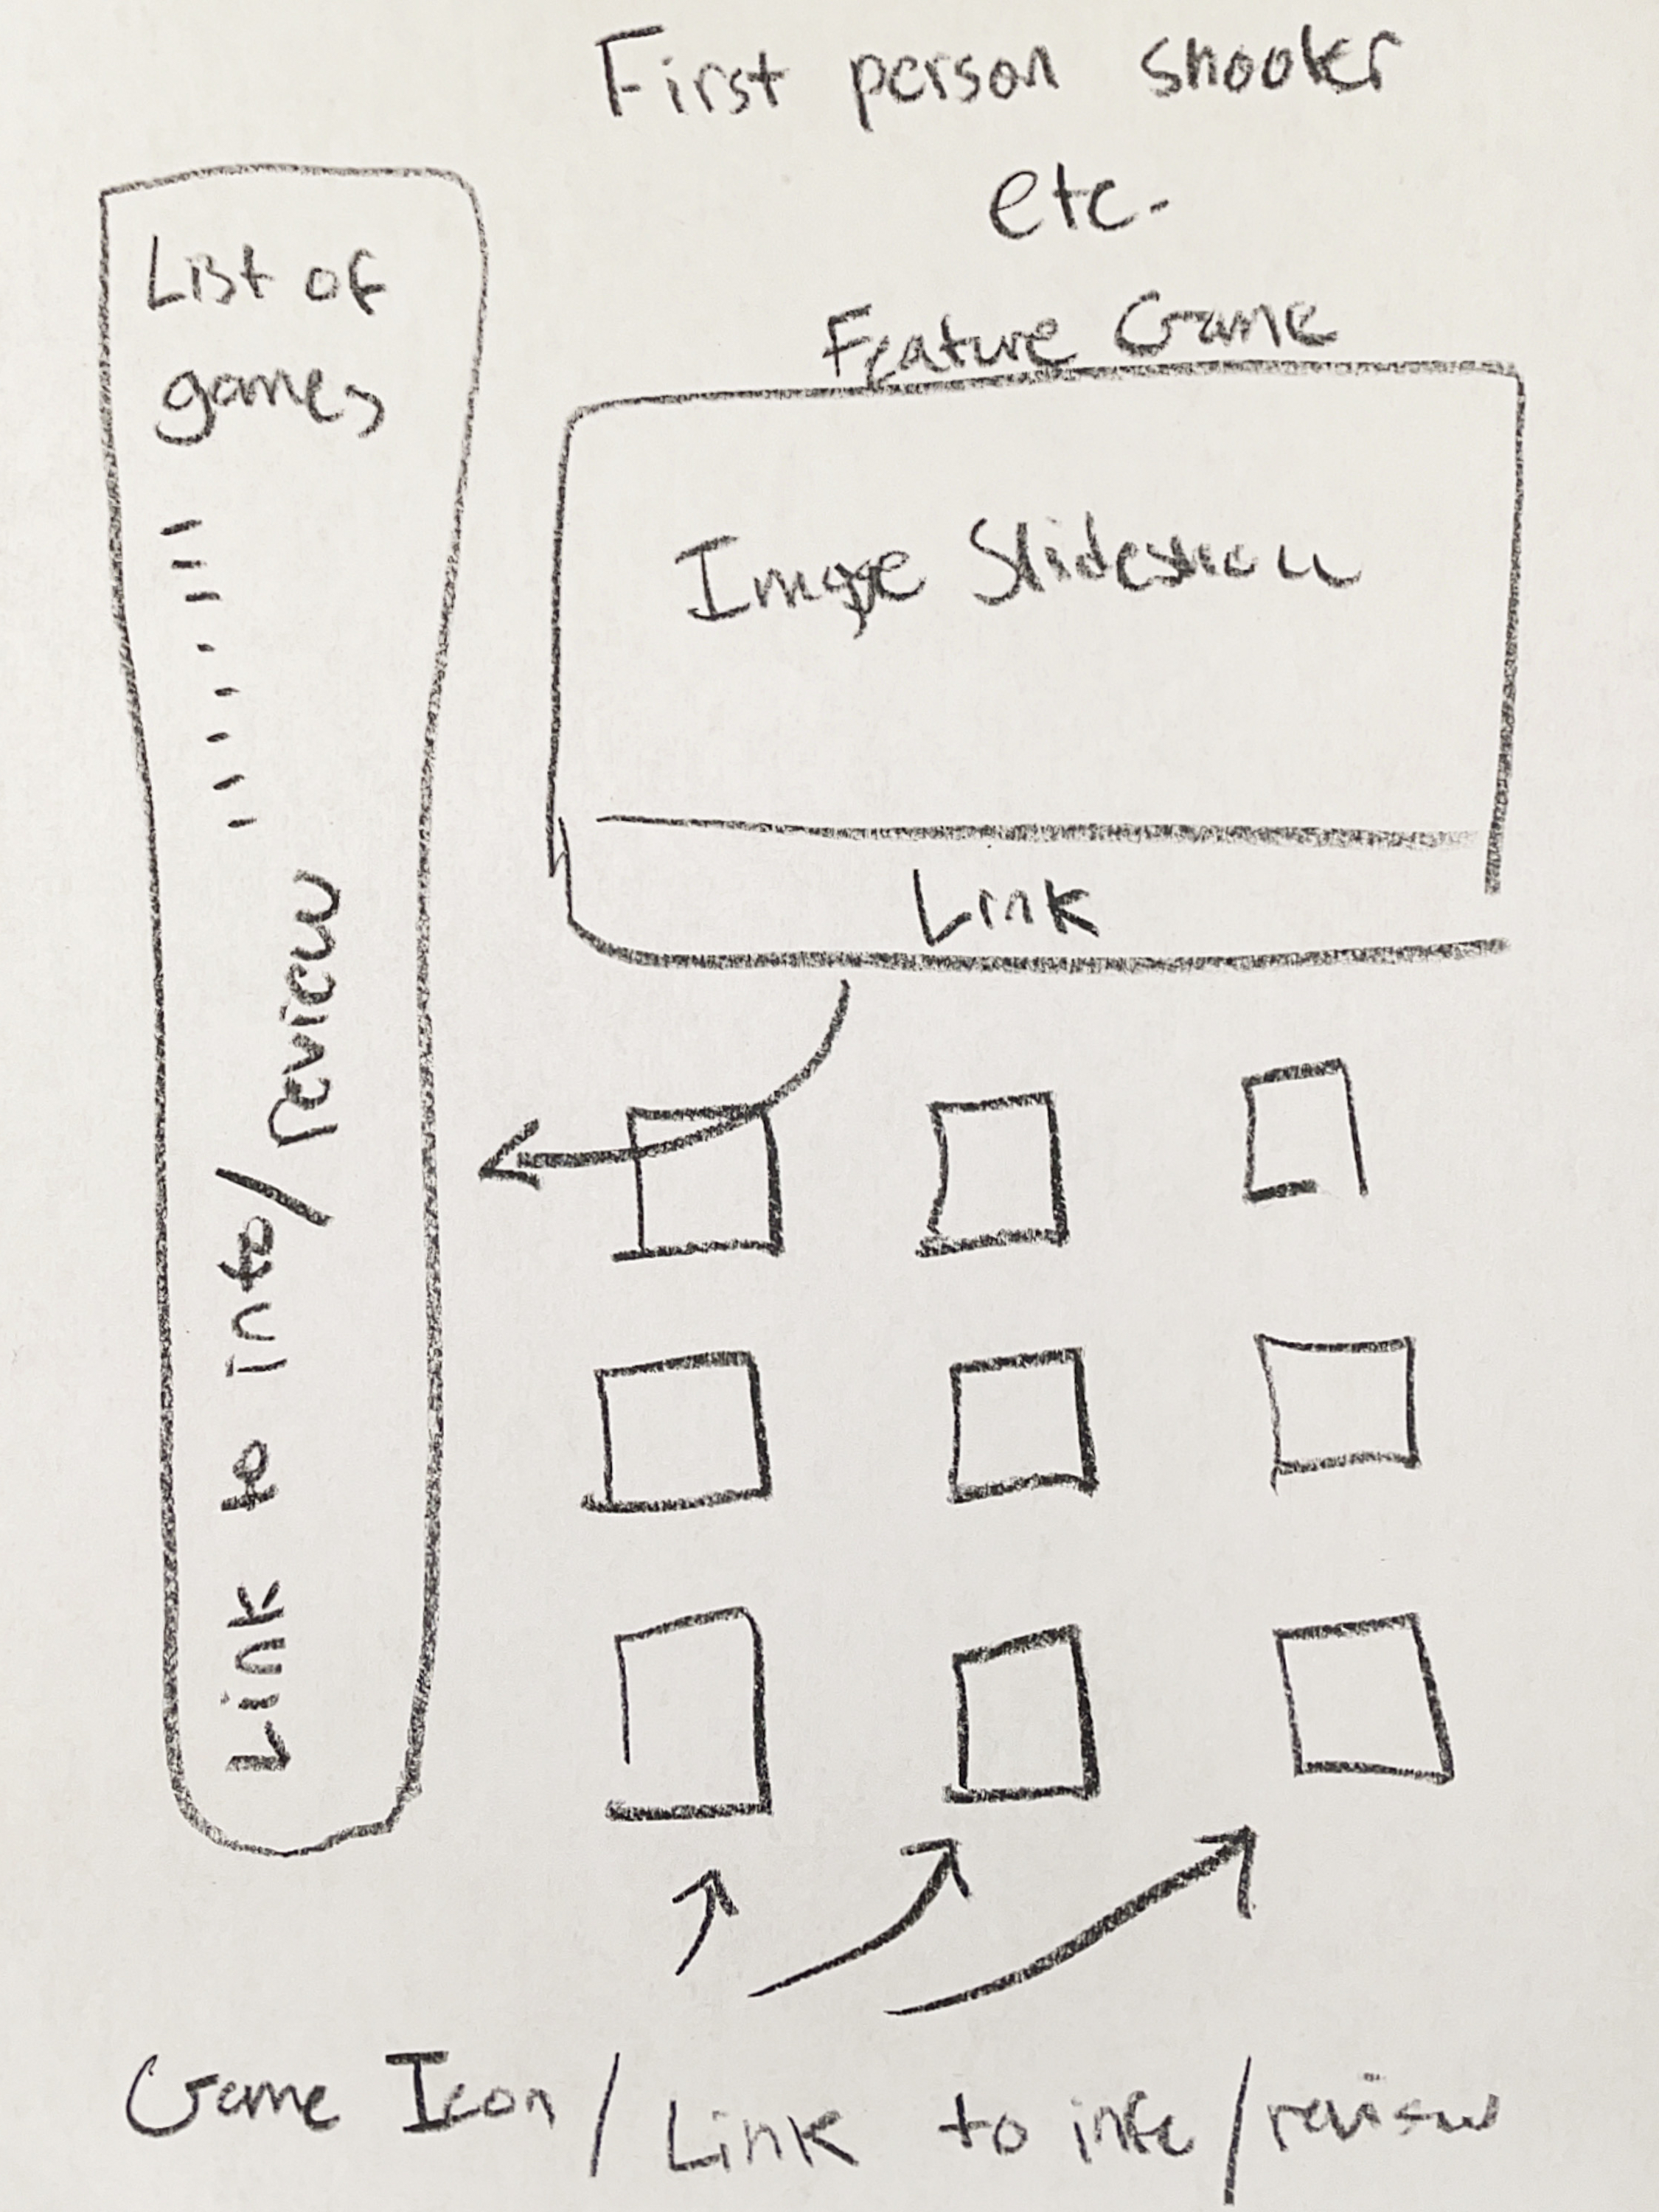 First person shooter
etc.
List of
games
Link to info/review
Feature Game
Image Slideshow
Link
Game Icon/Link to info/review